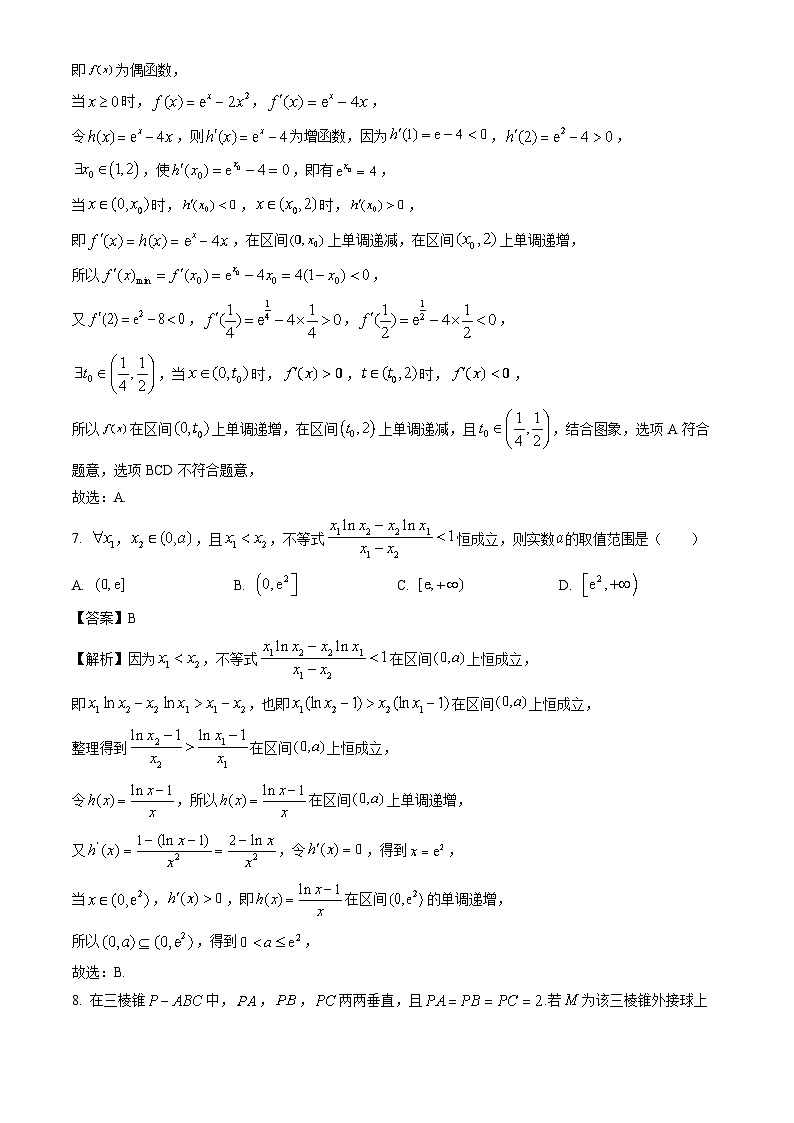 即 f(x) 为偶函数，
当 x ≥ 0 时，f(x) = eˣ − 2x²，f′(x) = eˣ − 4x，
令 h(x) = eˣ − 4x，则 h′(x) = eˣ − 4 为增函数，因为 h′(1) = e − 4 < 0，h′(2) = e² − 4 > 0，
∃x₀ ∈ (1,2)，使 h′(x₀) = e^{x₀} − 4 = 0，即有 e^{x₀} = 4，
当 x ∈ (0, x₀) 时，h′(x₀) < 0，x ∈ (x₀, 2) 时，h′(x₀) > 0，
即 f′(x) = h(x) = eˣ − 4x，在区间 (0, x₀) 上单调递减，在区间 (x₀, 2) 上单调递增，
所以 f′(x)_{min} = f′(x₀) = e^{x₀} − 4x₀ = 4(1 − x₀) < 0，
又 f′(2) = e² − 8 < 0，f′(1/4) = e^{1/4} − 4 × 1/4 > 0，f′(1/2) = e^{1/2} − 4 × 1/2 < 0，
∃t₀ ∈ (1/4, 1/2)，当 x ∈ (0, t₀) 时，f′(x) > 0，t ∈ (t₀, 2) 时，f′(x) < 0，
所以 f(x) 在区间 (0, t₀) 上单调递增，在区间 (t₀, 2) 上单调递减，且 t₀ ∈ (1/4, 1/2)，结合图象，选项 A 符合
题意，选项 BCD 不符合题意，
故选：A.
7. ∀x₁，x₂ ∈ (0, a)，且 x₁ < x₂，不等式 (x₁ ln x₂ − x₂ ln x₁)/(x₁ − x₂) < 1 恒成立，则实数 a 的取值范围是（　　）
A. (0, e]　B. (0, e²]　C. [e, +∞)　D. [e², +∞)
【答案】B
【解析】因为 x₁ < x₂，不等式 (x₁ ln x₂ − x₂ ln x₁)/(x₁ − x₂) < 1 在区间 (0, a) 上恒成立，
即 x₁ ln x₂ − x₂ ln x₁ > x₁ − x₂，也即 x₁(ln x₂ − 1) > x₂(ln x₁ − 1) 在区间 (0, a) 上恒成立，
整理得到 (ln x₂ − 1)/x₂ > (ln x₁ − 1)/x₁ 在区间 (0, a) 上恒成立，
令 h(x) = (ln x − 1)/x，所以 h(x) = (ln x − 1)/x 在区间 (0, a) 上单调递增，
又 h′(x) = (1 − (ln x − 1))/x² = (2 − ln x)/x²，令 h′(x) = 0，得到 x = e²，
当 x ∈ (0, e²)，h′(x) > 0，即 h(x) = (ln x − 1)/x 在区间 (0, e²) 的单调递增，
所以 (0, a) ⊆ (0, e²)，得到 0 < a ≤ e²，
故选：B.
8. 在三棱锥 P − ABC 中，PA，PB，PC 两两垂直，且 PA = PB = PC = 2.若 M 为该三棱锥外接球上